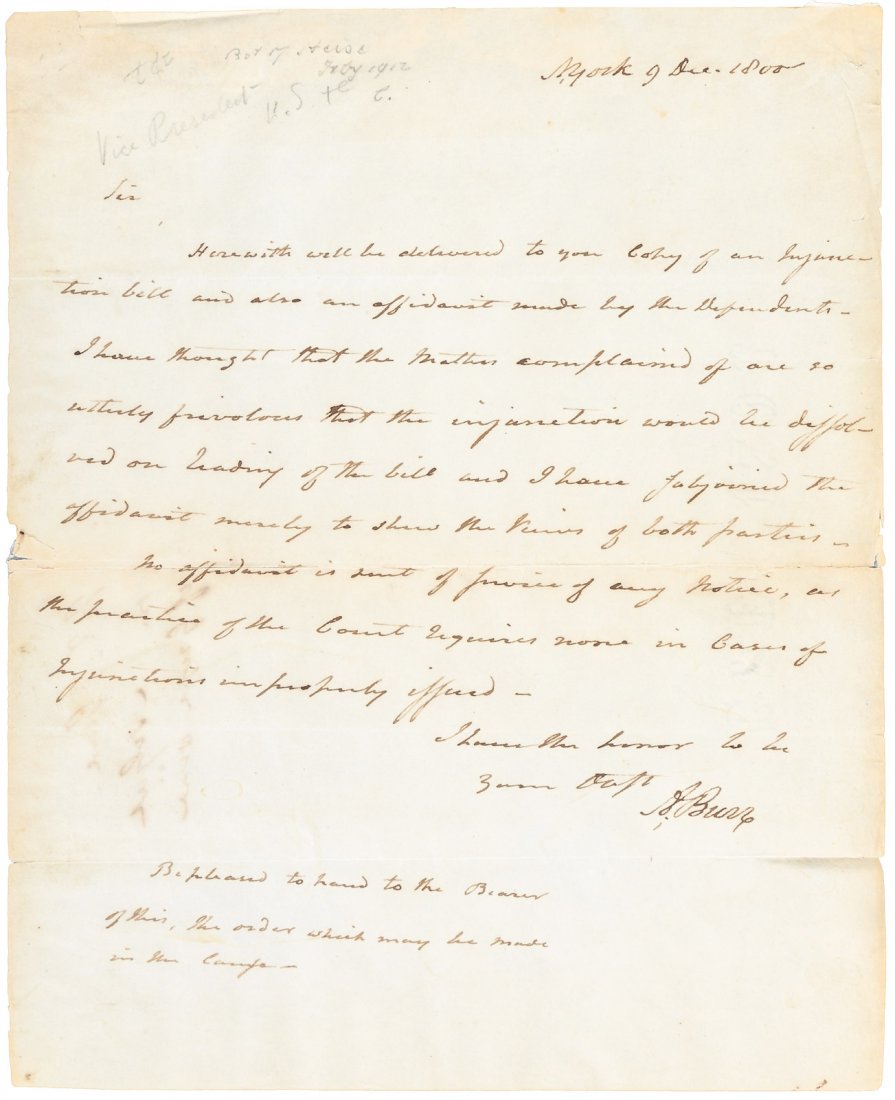 N. York 9 Dec. 1800
Vice President
U.S.
Sir
Herewith will be delivered to you Copy of an Injunc-
tion bill and also an affidavit made by the Defendents -
I have thought that the Matters complained of are so
utterly frivolous that the injunction would be dissol-
ved on reading of the bill and I have subjoined the
affidavit merely to shew the Views of both parties -
No affidavit is sent of service of any Notice, as
the practice of the Court requires none in Cases of
Injunctions improperly issued -
I have the honor to be
Your Obst
A. Burr
Be pleased to hand to the Bearer
of this, the order which may be made
in the Cause -